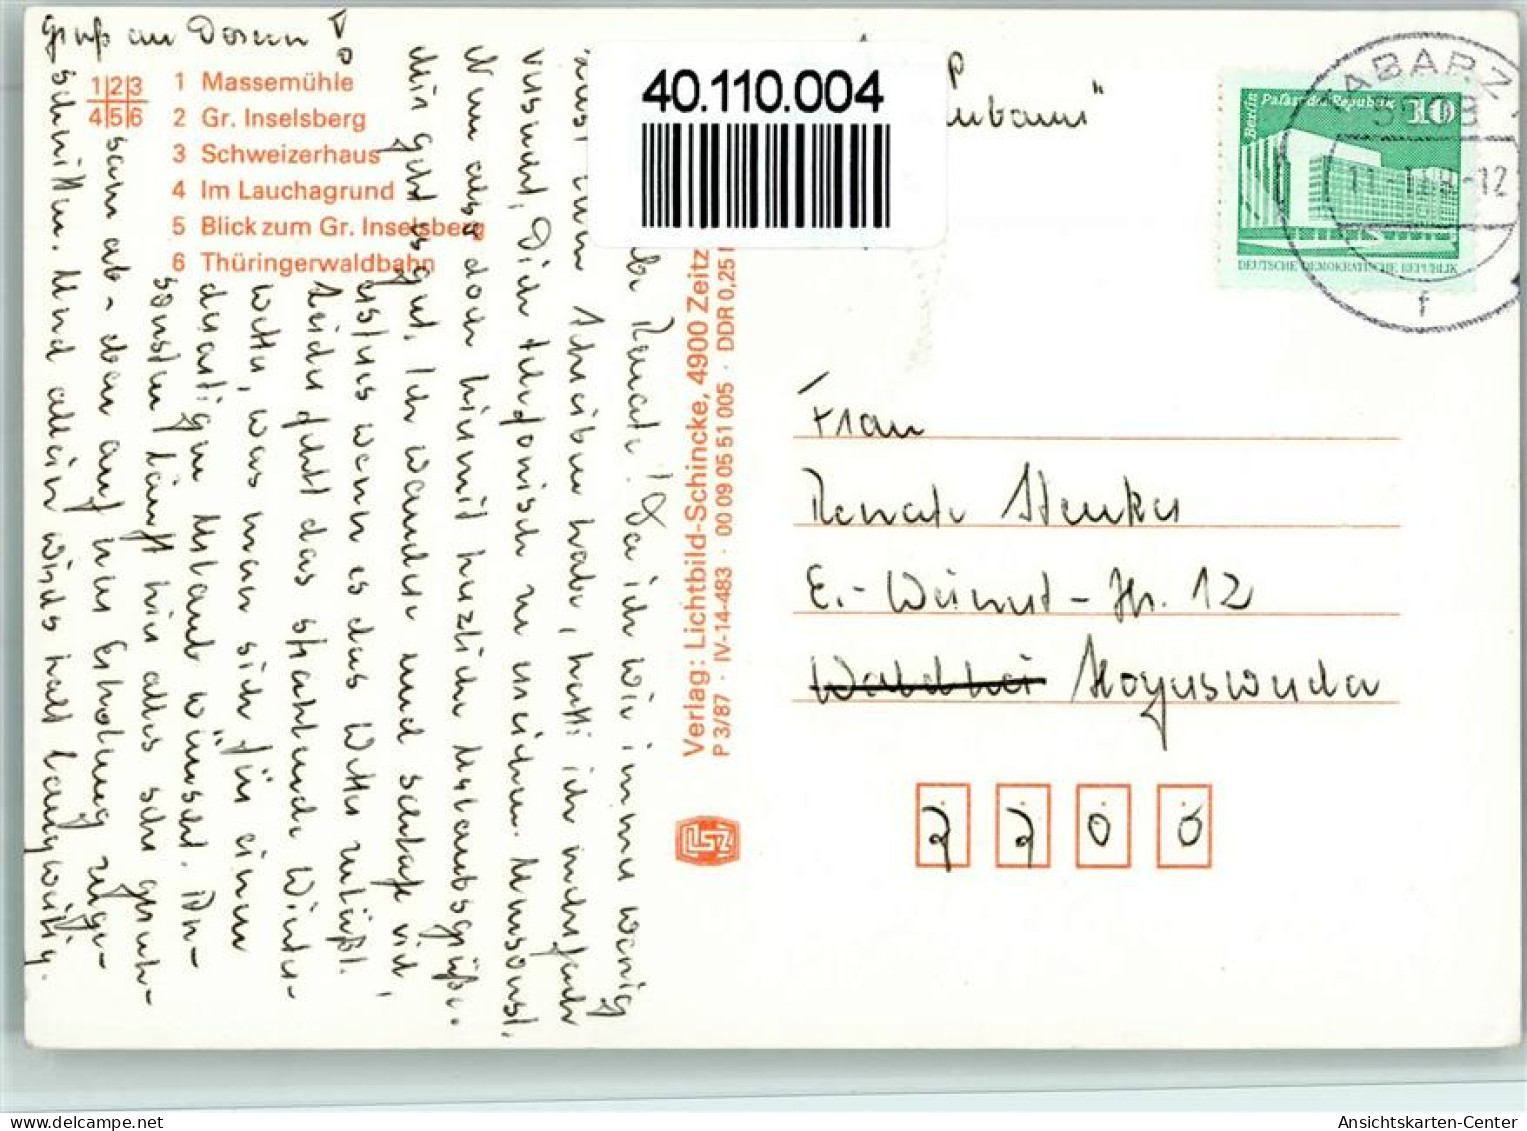 Gruß an Doreen!
1 2 3
4 5 6
1 Massemühle
2 Gr. Inselsberg
3 Schweizerhaus
4 Im Lauchagrund
5 Blick zum Gr. Inselsberg
6 Thüringerwaldbahn
40.110.004
TABARZ
5808
11.-1.88-12
f
Berlin Palast der Republik 10
DEUTSCHE DEMOKRATISCHE REPUBLIK
Renate! Da ich wie immer wenig
zum Schreiben habe, hatte ich mehrfach
versucht, Dich telefonisch zu erreichen. Umsonst.
Nun also doch hiermit herzliche Urlaubsgrüße.
Mir geht es gut. Ich wandere und schlafe viel,
ersteres wenn es das Wetter zuläßt.
Leider fehlt das strahlende Winter-
wetter, was man sich für einen
derartigen Urlaub wünscht. An-
sonsten läuft hier alles sehr geruh-
sam ab - eben auf Erholung zuge-
schnitten. Und allein wirds halt langweilig.
Verlag: Lichtbild-Schincke, 4900 Zeitz
P 3/87 · IV-14-483 · 00 09 05 51 005 · DDR 0,25
LSZ
Frau
Renate
E.-Weinert-Str. 12
Hoyerswerda
7 7 0 0
delcampe.net
Ansichtskarten-Center